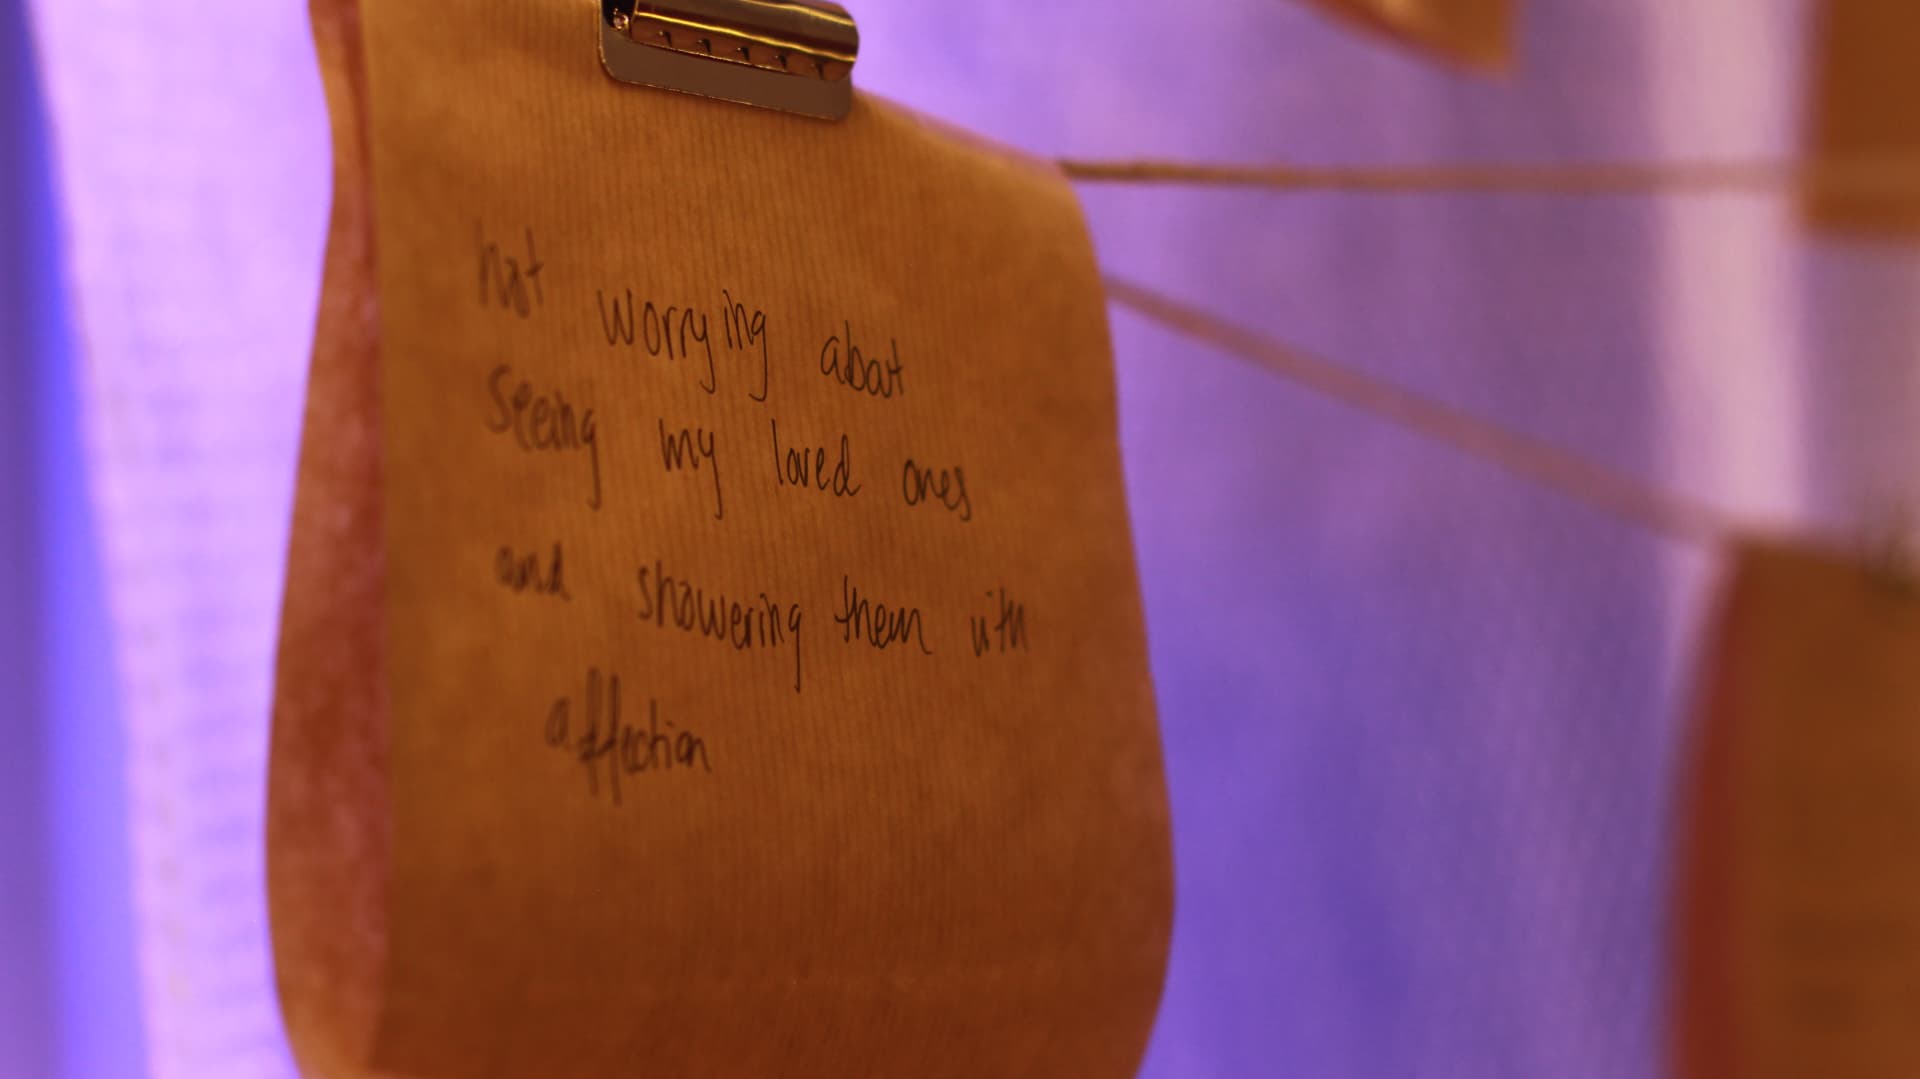 not worrying about
seeing my loved ones
and showering them with
affection